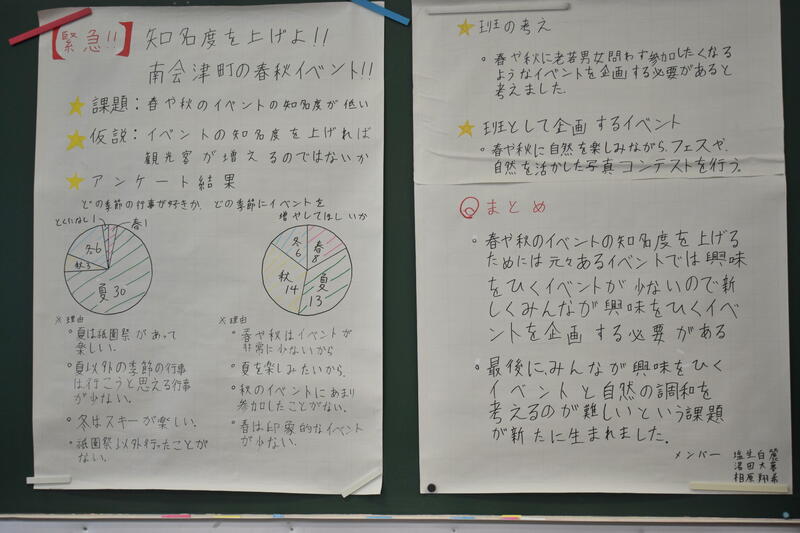 【緊急!!】 知名度を上げよ!!
南会津町の春秋イベント!!
課題:春や秋のイベントの知名度が低い
仮説:イベントの知名度を上げれば
観光客が増えるのではないか
アンケート結果
どの季節の行事が好きか
とくになし1
春1
冬6
秋3
夏30
※理由
・夏は祇園祭があって
楽しい。
・夏以外の季節の行事
は行こうと思える行事
が少ない。
・冬はスキーが楽しい。
・祇園祭以外行ったことが
ない。
どの季節にイベントを
増やしてほしいか
冬
6
春
8
秋
14
夏
13
※理由
・春や秋はイベントが
非常に少ないから
・夏を楽しみたいから。
・秋のイベントにあまり
参加したことがない。
・春は印象的なイベント
が少ない。
班の考え
・春や秋に老若男女問わず参加したくなる
ようなイベントを企画する必要があると
考えました。
班として企画するイベント
・春や秋に自然を楽しみながら、フェスや、
自然を活かした写真コンテストを行う。
まとめ
・春や秋のイベントの知名度を上げる
ためには元々あるイベントでは興味
をひくイベントが少ないので新
しくみんなが興味をひくイベ
ントを企画する必要がある
・最後に、みんなが興味をひく
イベントと自然の調和を
考えるのが難しいという課題
が新たに生まれました。
メンバー